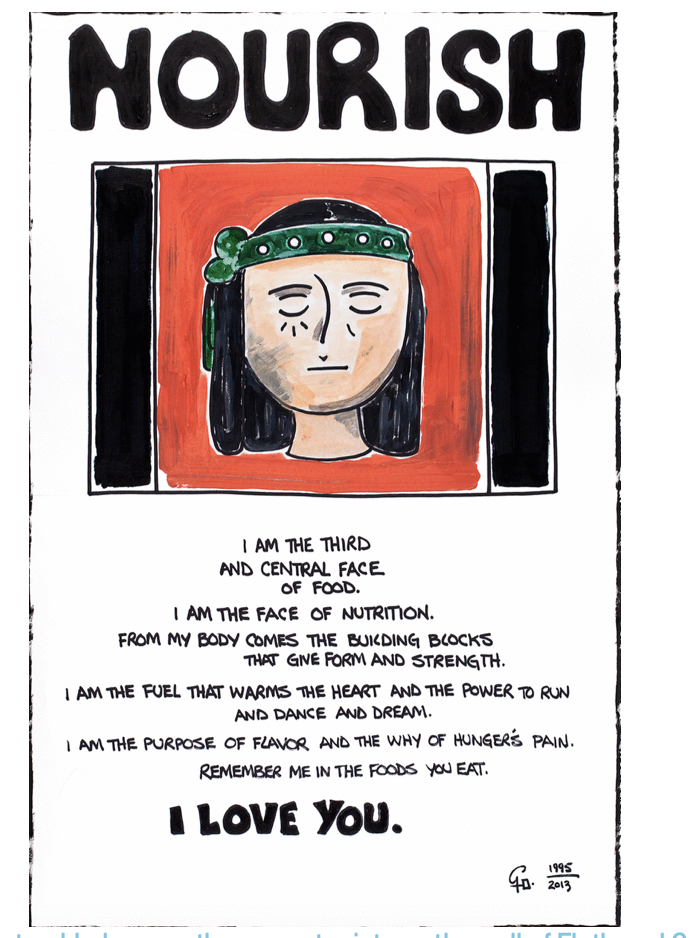 NOURISH
I AM THE THIRD
AND CENTRAL FACE
OF FOOD.
I AM THE FACE OF NUTRITION.
FROM MY BODY COMES THE BUILDING BLOCKS
THAT GIVE FORM AND STRENGTH.
I AM THE FUEL THAT WARMS THE HEART AND THE POWER TO RUN
AND DANCE AND DREAM.
I AM THE PURPOSE OF FLAVOR AND THE WHY OF HUNGER'S PAIN.
REMEMBER ME IN THE FOODS YOU EAT.
I LOVE YOU.
1995
2013